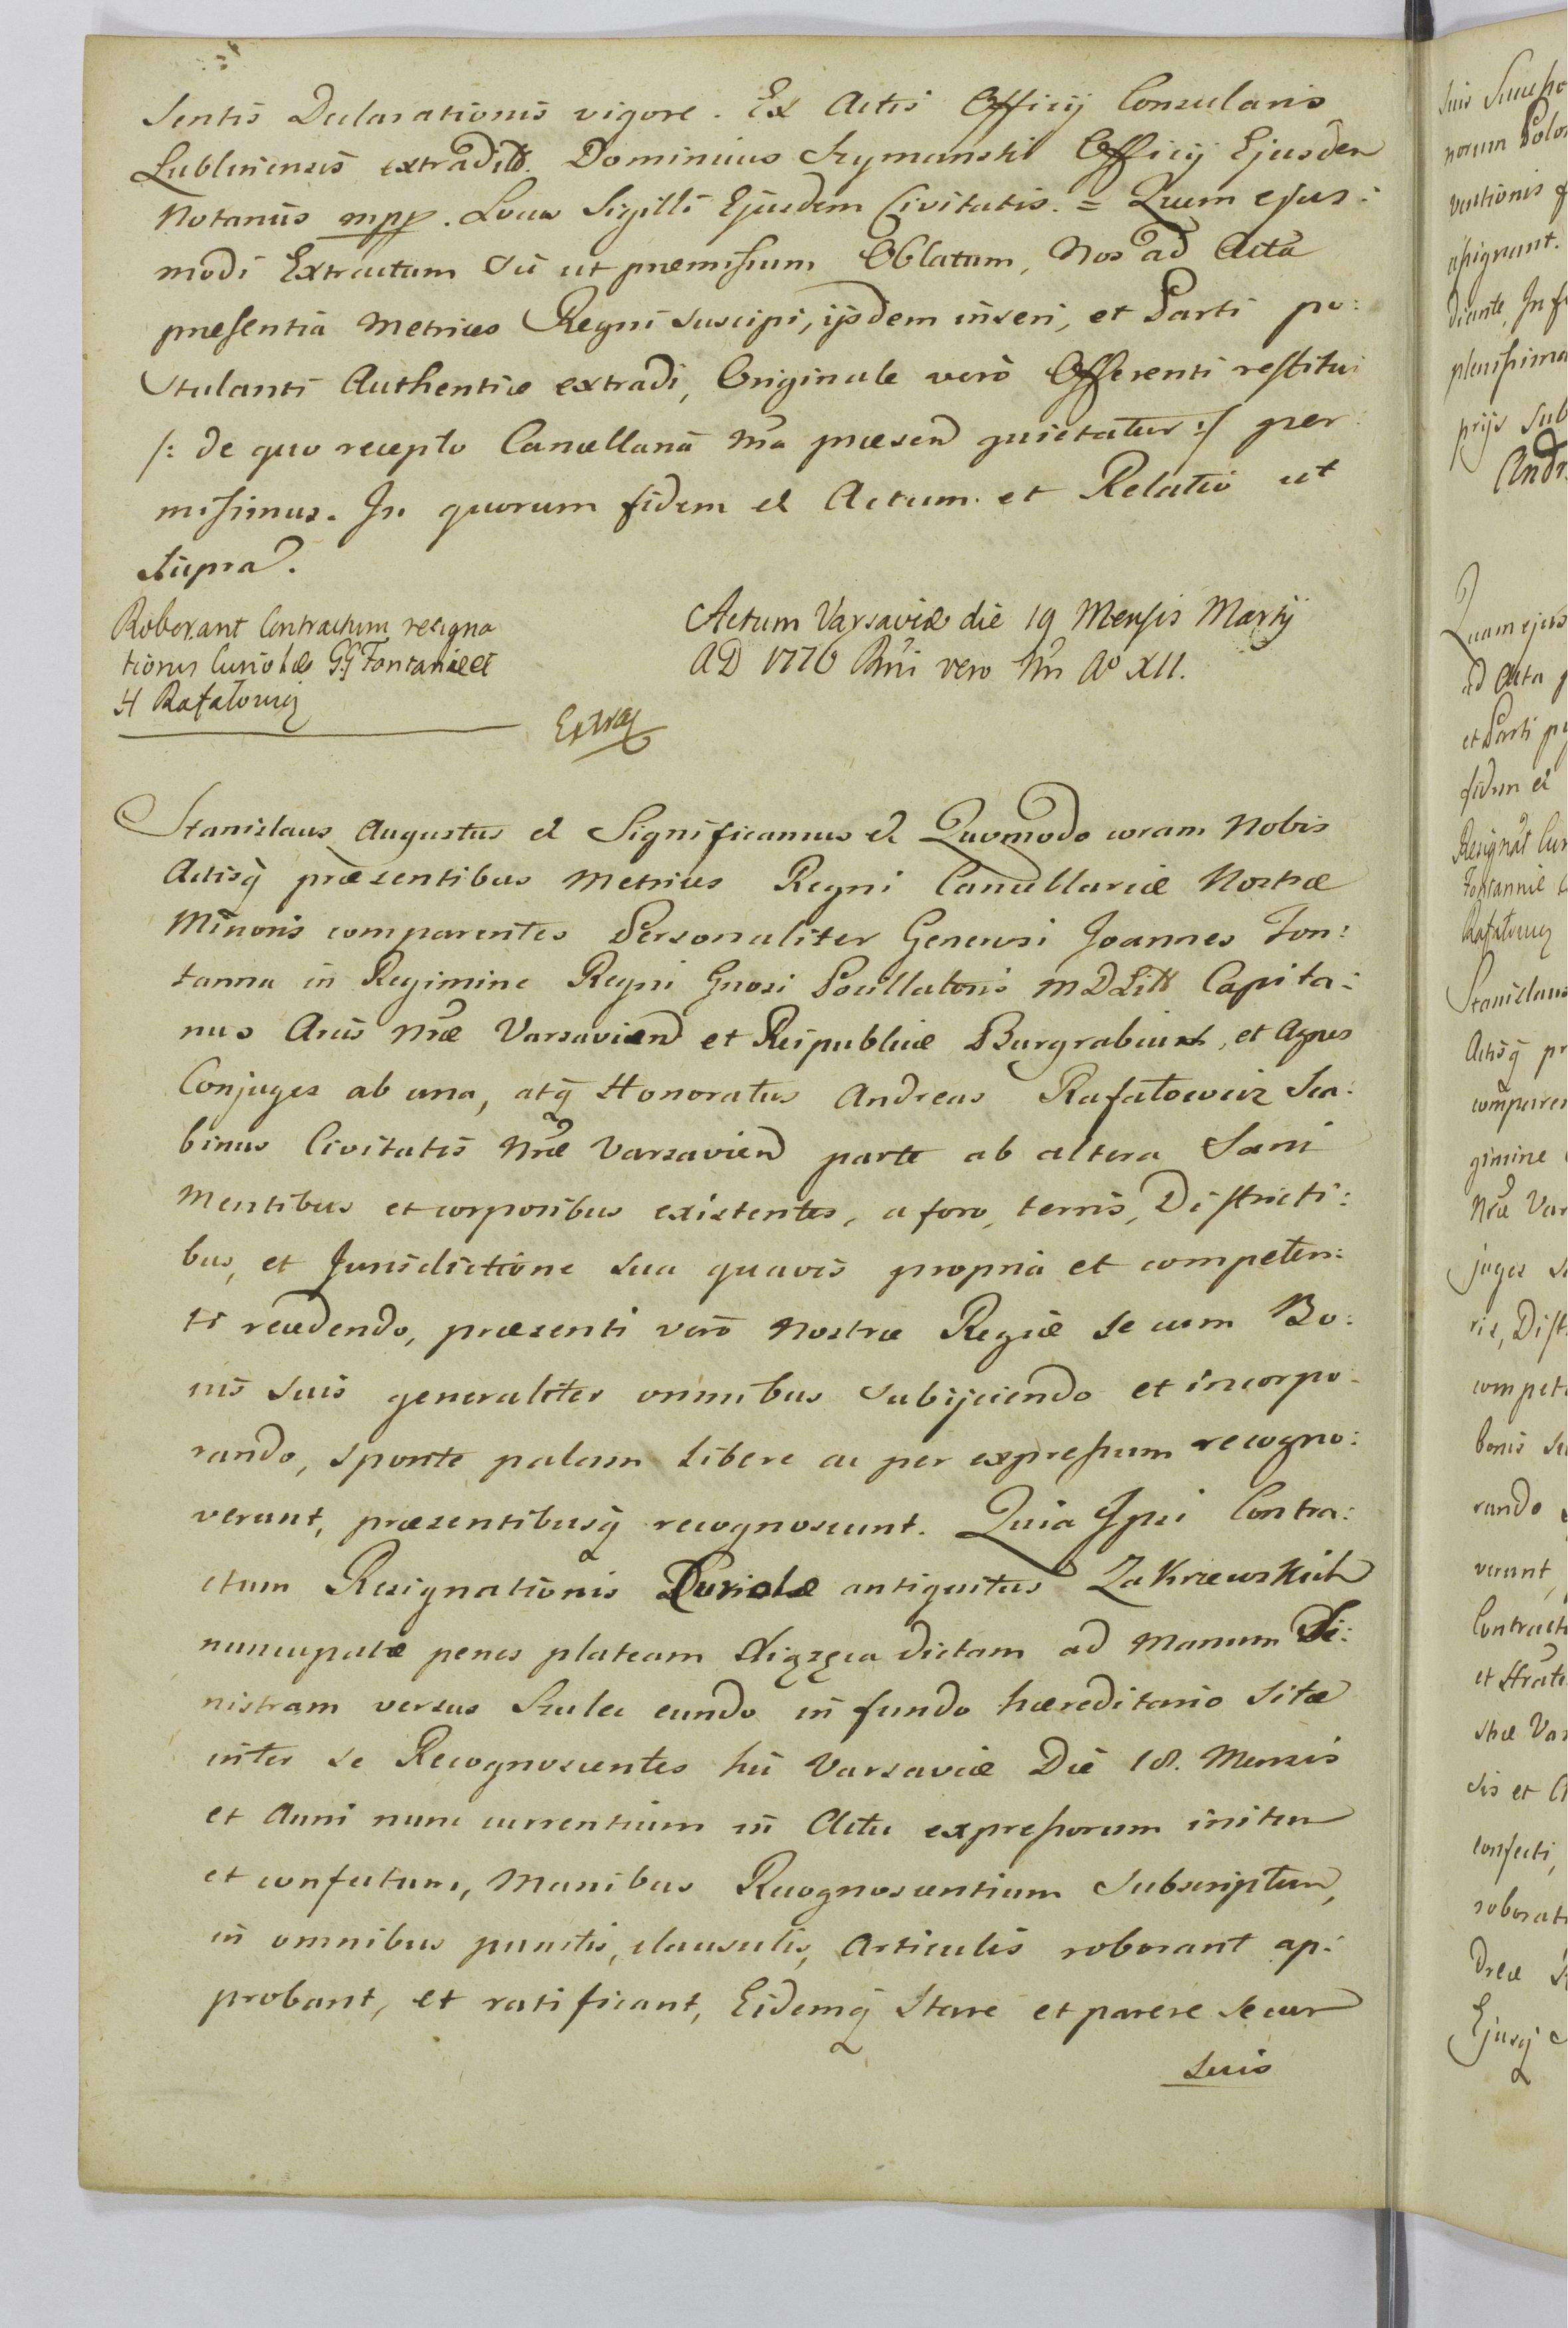 sentis Declarationis vigore. Ex Actis Officij Consularis
Lublinensis extradit. Dominicus Szymanski Officij Ejusdem
Notarius mpp. Locus Sigilli Ejusdem Civitatis. = Quem ejus:
modi Extractum sic ut præmissum Oblatum, Nos ad Acta
præsentia Metrices Regni suscipi, ijsdem inseri, et Parti po:
stulanti Authentice extradi, Originale verò Offerenti restitui
/: de quo recepto Cancellaria Nra præsen quietatur :/ per
misimus. In quorum fidem et Actum et Relatio ut
supra.
Roborant Contractum resigna
tionis Curiolæ GG Fontaniæ et
H Rafałowicz
Actum Varsaviæ die 19 Mensis Martij
AD 1776 Rni vero Nri A° XII.
Extrad
Stanislaus Augustus et Significamus et Quomodo coram Nobis
Actisq præsentibus Metrices Regni Cancellariæ Nostræ
Minoris comparentes Personaliter Generosi Joannes Fon:
tanna in Regimine Regni Gnosi MDLitt Capita:
nus Arcis Nræ Varsavien et Reipublicæ Burgrabius, et Agnes
Conjuges ab una, atq Honoratus Andreas Rafałowicz Sca:
binus Civitatis Nræ Varsavien parte ab altera Sani
Mentibus et corporibus existentes, a foro, terris, Districti:
bus, et Jurisdictione sua quavis propria et competen:
ti recedendo, præsenti verò Nostræ Regiæ se cum Bo:
nis suis generaliter omnibus subijciendo et incorpo:
rando, sponte palam libere ac per expressum recogno:
verunt, præsentibusq recognoscunt. Quia Ipsi Contra:
ctum Resignationis Curiolæ antiquitus Zakrzewskich
nuncupatæ penes plateam Xiążęca dictam ad Manum Si:
nistram versus Szulec eundo in fundo hæreditario sitæ
inter se Recognoscentes hic Varsaviæ Die 18. Mensis
et Anni nunc currentium in Actu expressorum initum
et confectum, Manibus Recognoscentium Subscriptum,
in omnibus punctis, clausulis, Articulis roborant ap:
probant, et ratificant, Eidemq Stare et parere se cum
suis